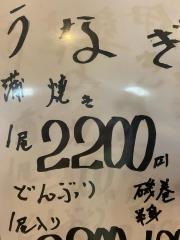 うなぎ
蒲焼き
1尾 2200円
どんぶり
1尾入り
磯巻